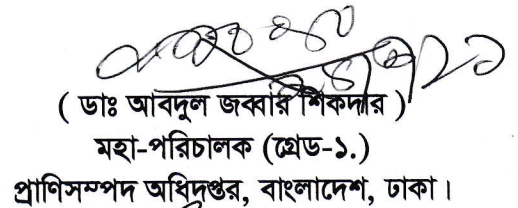 ( ডাঃ আবদুল জব্বার শিকদার )
মহা-পরিচালক (গ্রেড-১.)
প্রাণিসম্পদ অধিদপ্তর, বাংলাদেশ, ঢাকা।